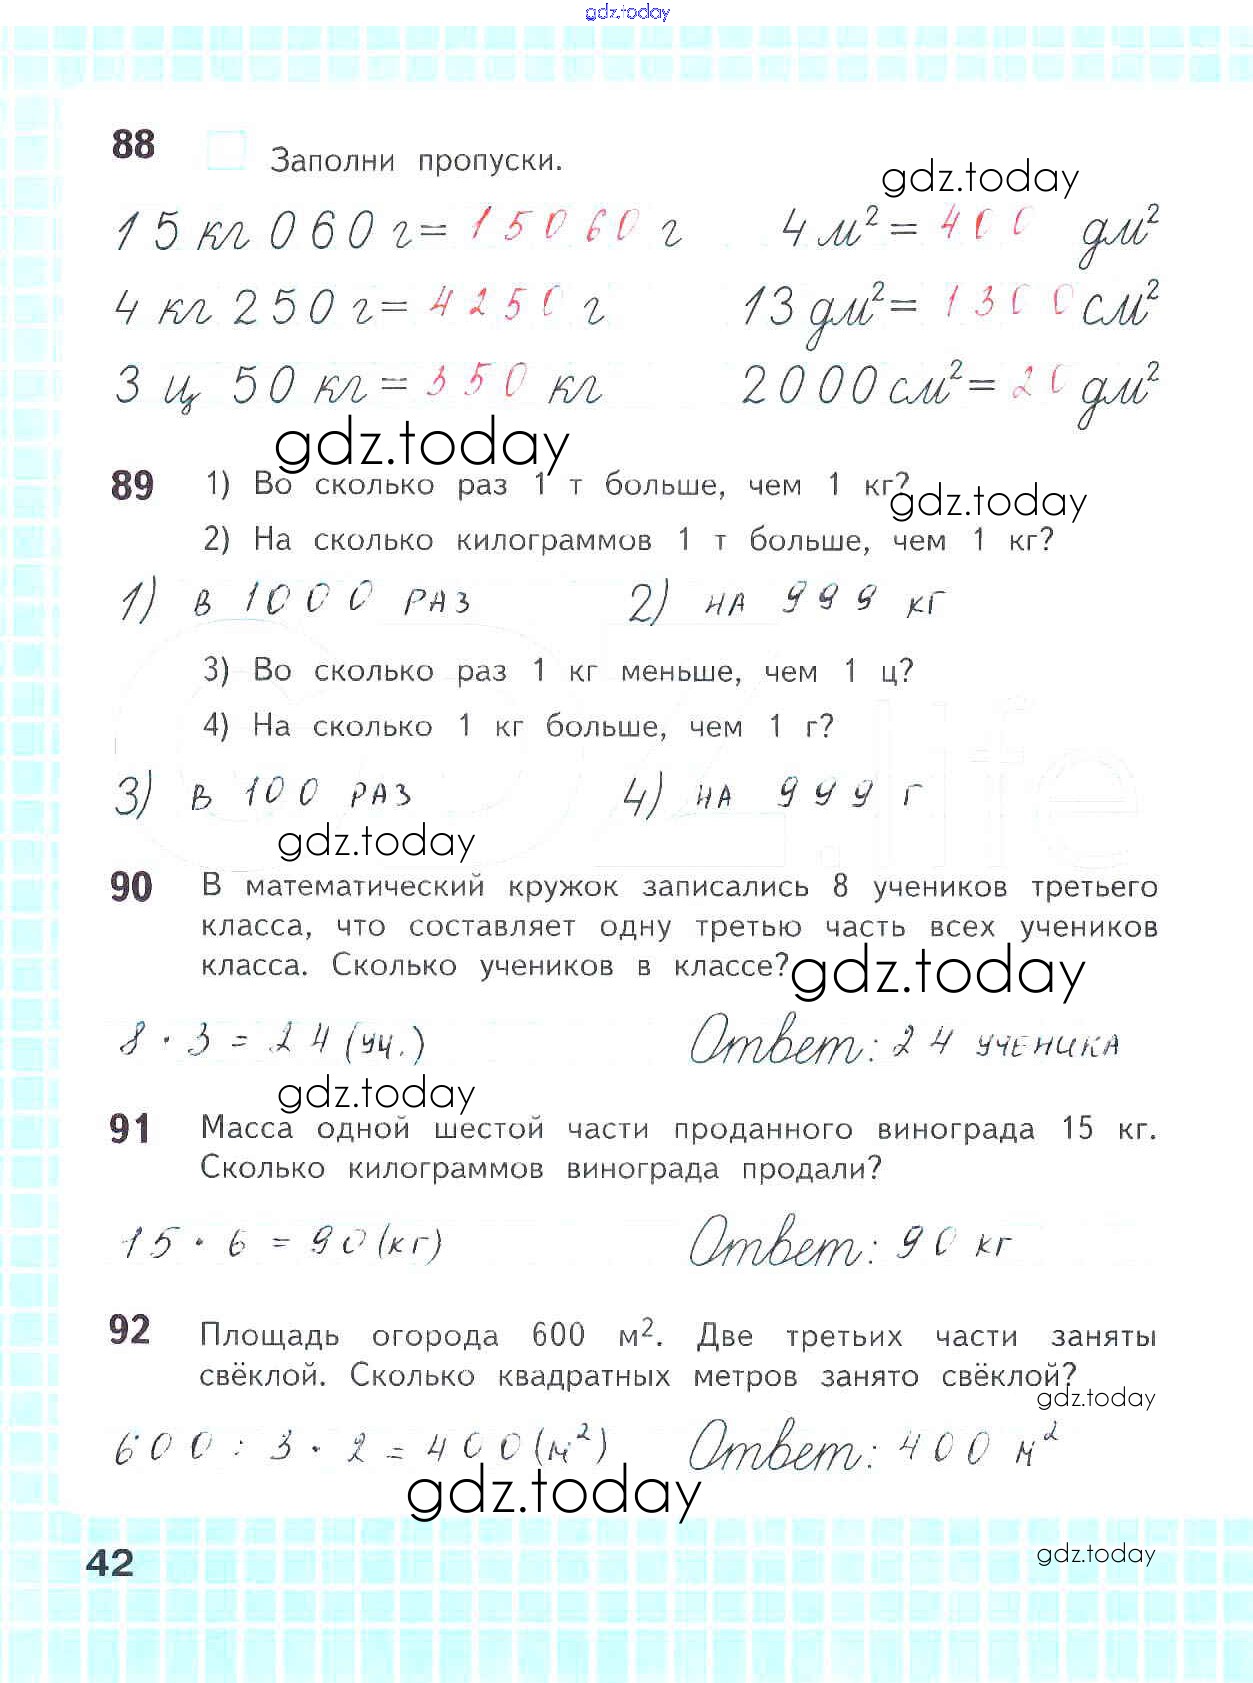 gdz.today
88 Заполни пропуски.
gdz.today
15 кг 060 г = 15060 г 4 м² = 400 дм²
4 кг 250 г = 4250 г 13 дм² = 1300 см²
3 ц 50 кг = 350 кг 2000 см² = 20 дм²
gdz.today
89 1) Во сколько раз 1 т больше, чем 1 кг?
gdz.today
2) На сколько килограммов 1 т больше, чем 1 кг?
1) в 1000 раз 2) на 999 кг
3) Во сколько раз 1 кг меньше, чем 1 ц?
4) На сколько 1 кг больше, чем 1 г?
GDZ.life
3) в 100 раз 4) на 999 г
gdz.today
90 В математический кружок записались 8 учеников третьего
класса, что составляет одну третью часть всех учеников
класса. Сколько учеников в классе?
gdz.today
8 · 3 = 24 (уч.) Ответ: 24 ученика
gdz.today
91 Масса одной шестой части проданного винограда 15 кг.
Сколько килограммов винограда продали?
15 · 6 = 90 (кг) Ответ: 90 кг
92 Площадь огорода 600 м². Две третьих части заняты
свёклой. Сколько квадратных метров занято свёклой?
gdz.today
600 : 3 · 2 = 400 (м²) Ответ: 400 м²
gdz.today
42
gdz.today